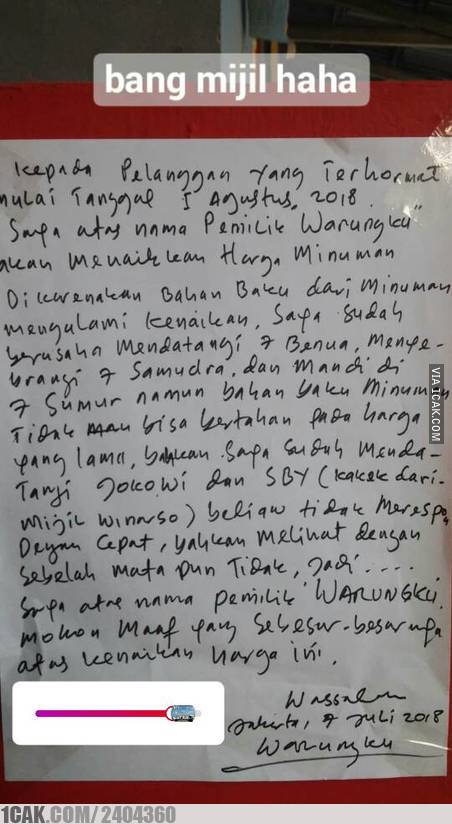 bang mijil haha
Kepada Pelanggan yang Terhormat
mulai Tanggal 5 Agustus, 2018.
Saya atas nama Pemilik Warungku"
akan menaikkan Harga Minuman
Dikarenakan Bahan Baku dari minuman
mengalami kenaikan, Saya sudah
berusaha Mendatangi 7 Benua, Menye-
brangi 7 Samudra, dan Mandi di
7 Sumur namun bahan baku Minuman
Tidak bisa bertahan pada harga
yang lama, bahkan Saya sudah Menda-
Tangi Jokowi dan SBY (kakek dari-
Mijil Winarso) beliau tidak Merespo
Dengan Cepat, bahkan Melihat dengan
Sebelah mata pun Tidak, Jadi.....
Saya atas nama pemilik WARUNGKU.
mohon Maaf yang Sebesar-besarnya
atas kenaikan harga ini.
Wassalam
Jakarta, 7 Juli 2018
Warungku
VIA 1CAK.COM
1CAK.COM/2404360